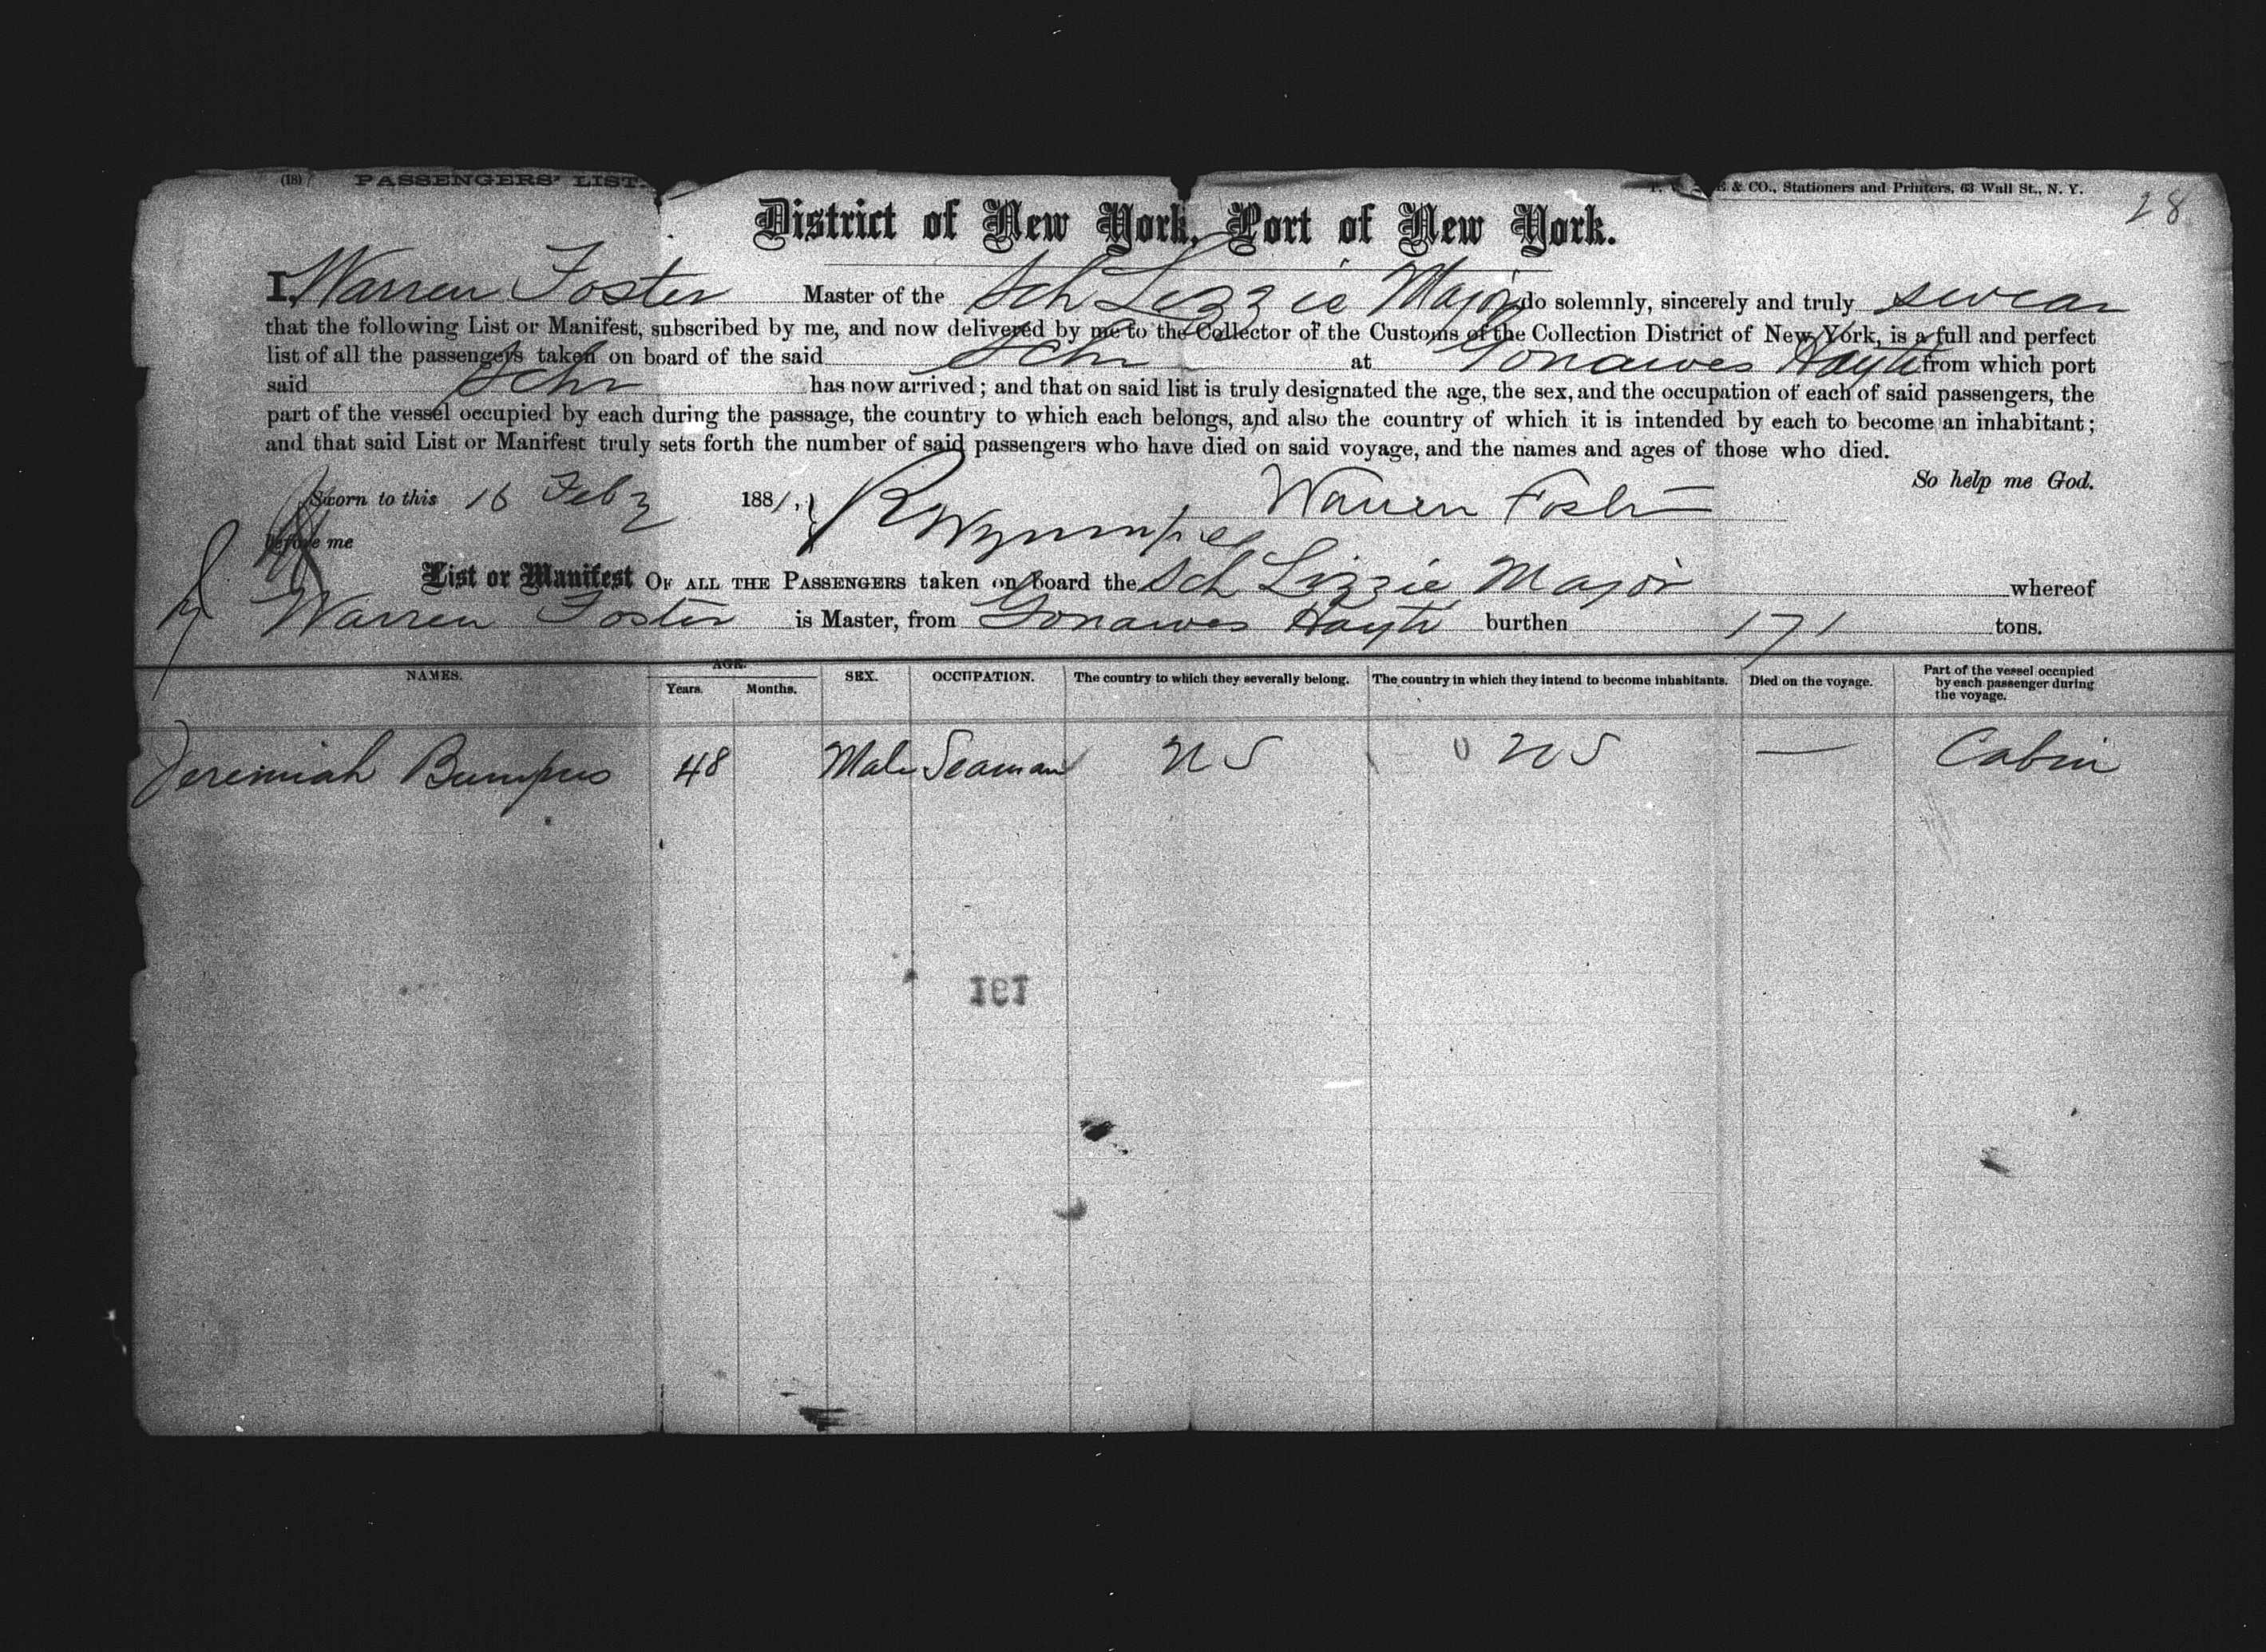 (18) PASSENGERS' LIST.
& CO., Stationers and Printers, 63 Wall St., N. Y.
28
District of New York, Port of New York.
I, Warren Foster Master of the Sch Lizzie Major do solemnly, sincerely and truly swear
that the following List or Manifest, subscribed by me, and now delivered by me to the Collector of the Customs of the Collection District of New York, is a full and perfect
list of all the passengers taken on board of the said Schr at Gonaives Hayti from which port
said Schr has now arrived; and that on said list is truly designated the age, the sex, and the occupation of each of said passengers, the
part of the vessel occupied by each during the passage, the country to which each belongs, and also the country of which it is intended by each to become an inhabitant;
and that said List or Manifest truly sets forth the number of said passengers who have died on said voyage, and the names and ages of those who died.
So help me God.
Sworn to this 16 Feby 1881, Warren Foster
before me
List or Manifest OF ALL THE PASSENGERS taken on board the Sch Lizzie Major whereof
Warren Foster is Master, from Gonaives Hayti burthen 171 tons.
NAMES. AGE. Years. Months. SEX. OCCUPATION. The country to which they severally belong. The country in which they intend to become inhabitants. Died on the voyage. Part of the vessel occupied by each passenger during the voyage.
Jeremiah Bumpus 48 Male Seaman US US — Cabin
191